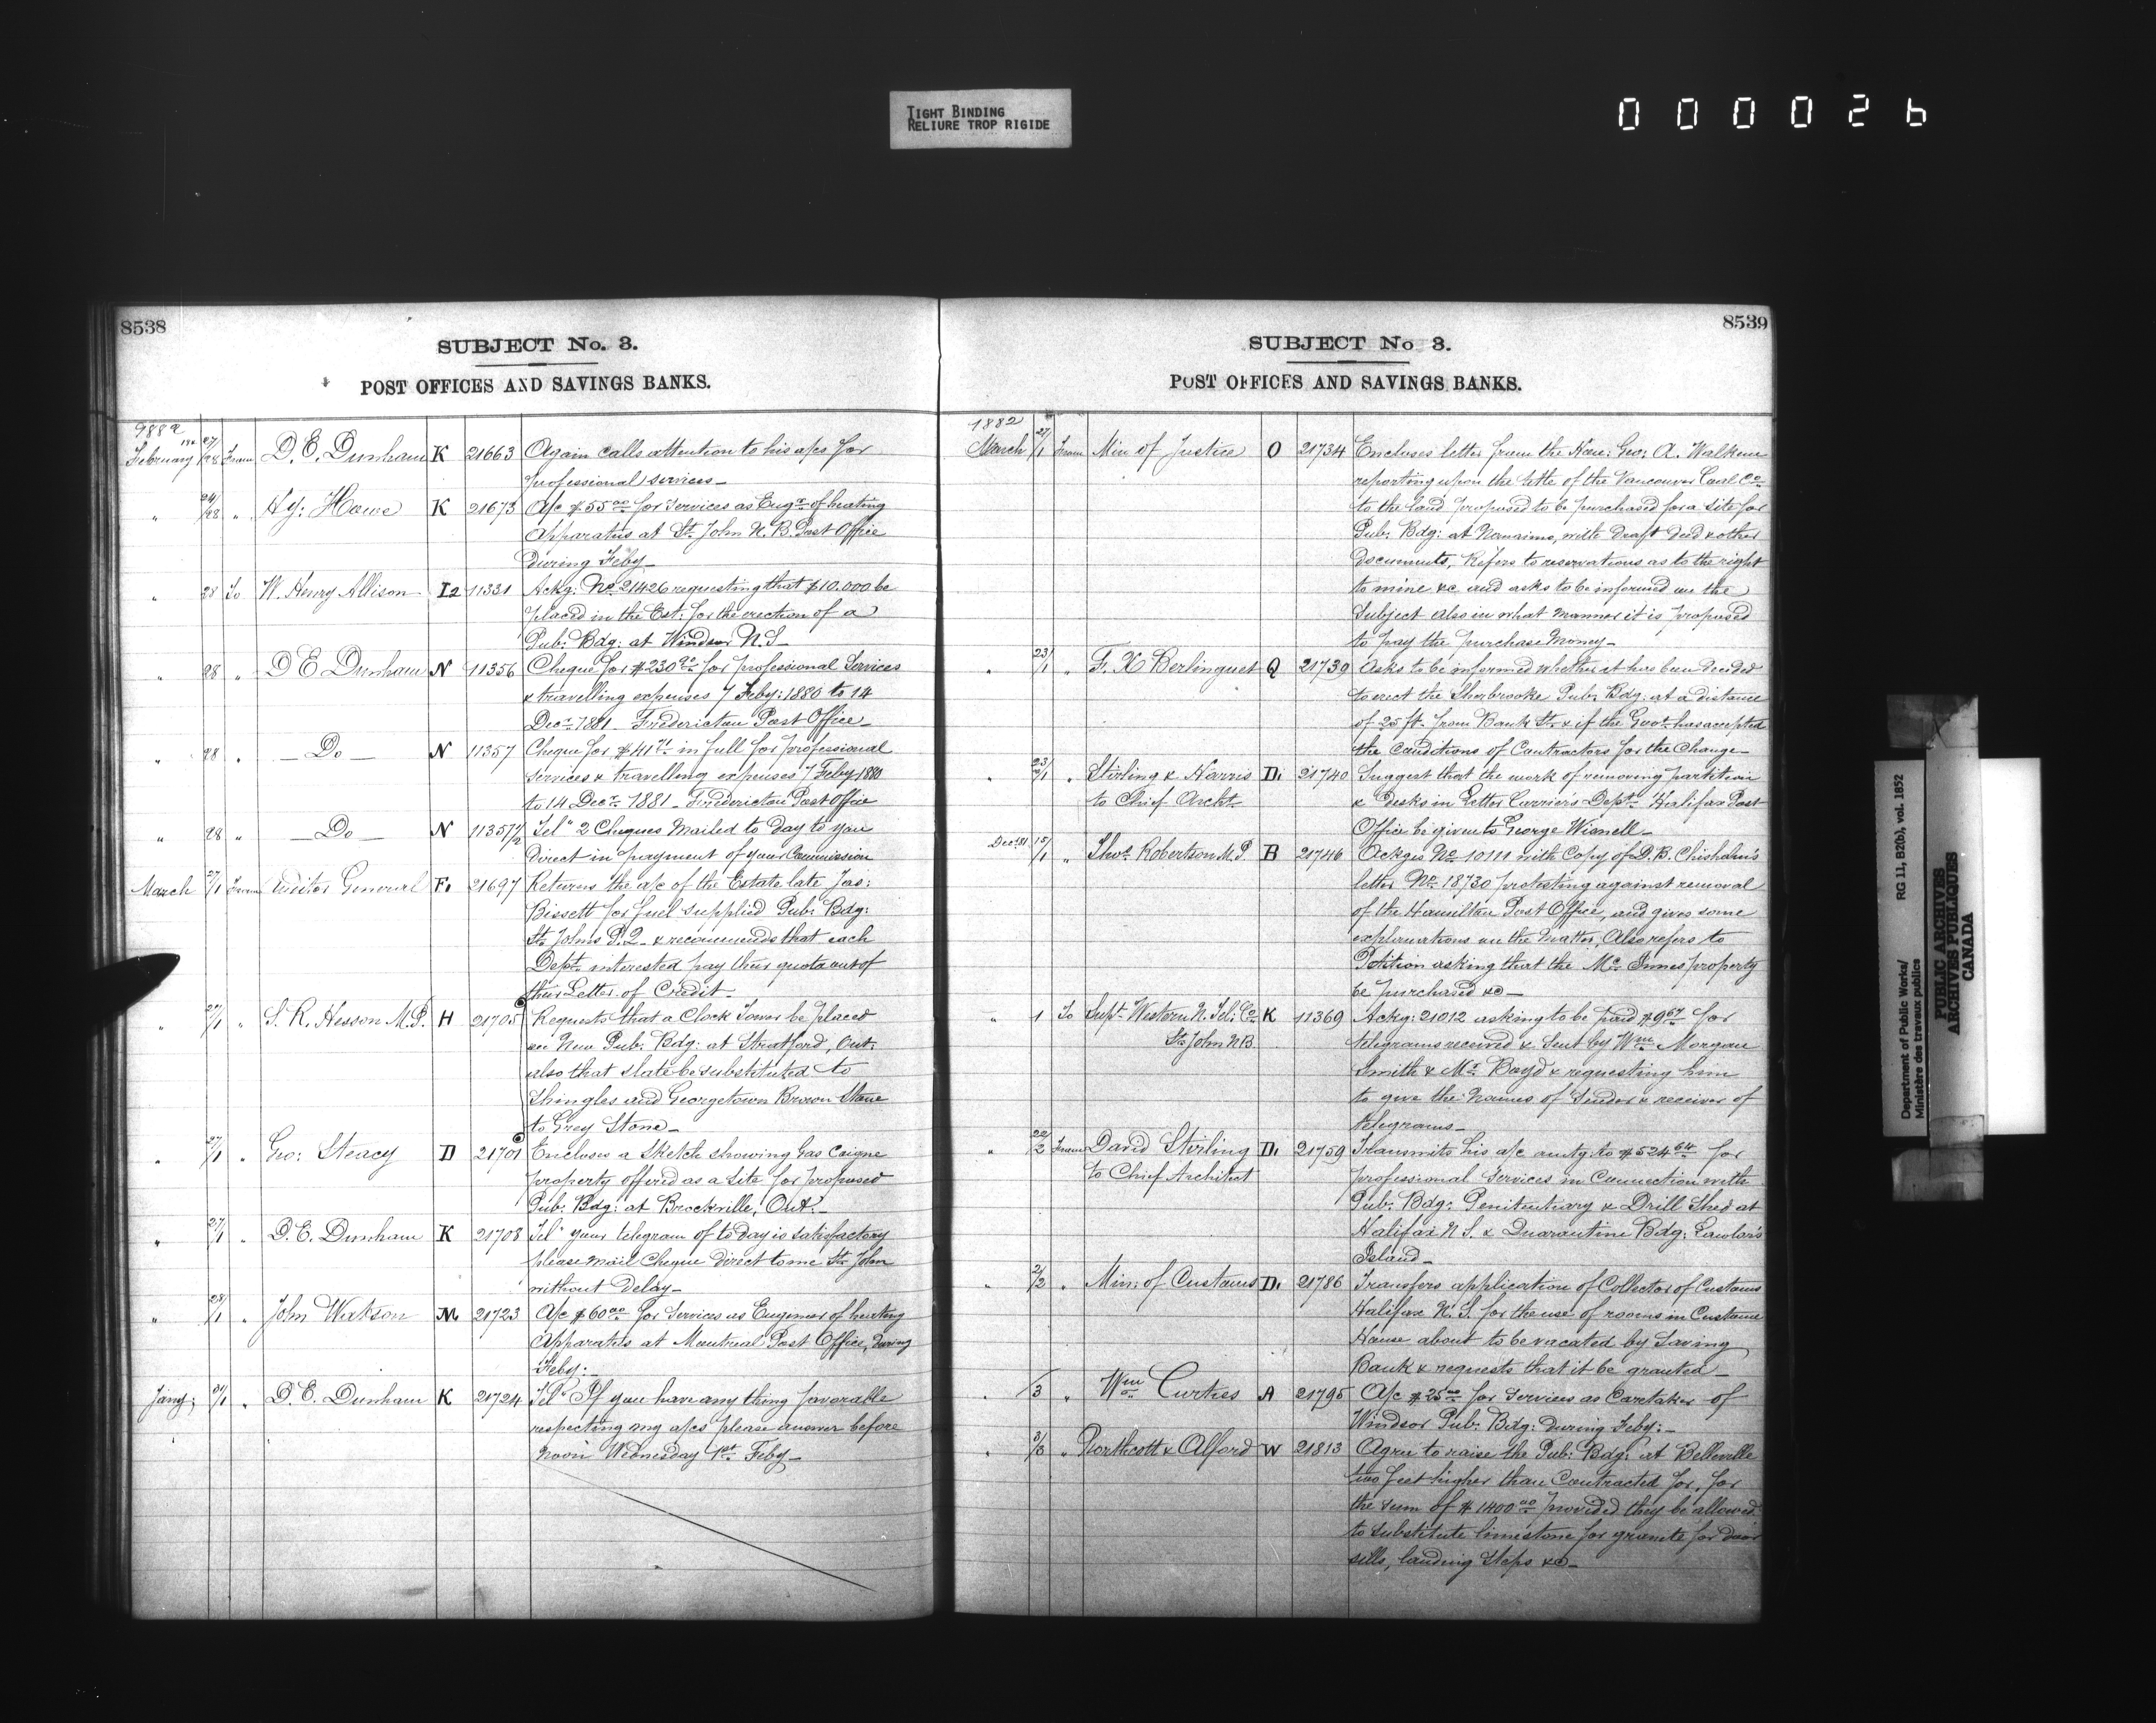 TIGHT BINDING
RELIURE TROP RIGIDE
000026
8538
SUBJECT No. 3.
POST OFFICES AND SAVINGS BANKS.
February 27/28 From D. E. Dunham K 21663 Again calls attention to his a/cs for
professional services_
" 24/28 " Hy: Howe K 21673 A/c $55.00 for services as Engr. of heating
Apparatus at St. John N.B. Post Office
during Feby_
" 28 To W. Henry Allison I2 11331 Ackg: No. 21426 requesting that $10.000 be
placed in the Est: for the erection of a
Pub: Bdg: at Windsor N.S_
" 28 " D E Dunham N 11356 Cheque for $230 for professional Services
& travelling expenses 7 Feby: 1880 to 14
Decr. 1881_ Fredericton Post Office_
" 28 " _Do_ N 11357 Cheque for $41 in full for professional
services & travelling expenses 7 Feby 1880
to 14 Decr. 1881_ Fredericton Post Office
" 28 " _Do_ N 11357 1/2 Tel" 2 Cheques Mailed to day to you
direct in payment of your Commission
March 27/1 From Auditor General F1 21697 Returns the a/c of the Estate late Jas:
Bissett for fuel supplied Pub: Bdg:
St. Johns P.Q_ & recommends that each
Dept. interested pay their quota out of
their Letter of Credit_
" 27/1 " S. R. Hesson M.P. H 21705 Requests that a Clock Tower be placed
on New Pub: Bdg: at Stratford, Ont:
also that slate be substituted to
Shingles and Georgetown Brown Stone
to Grey Stone_
" 27/1 " Geo: Steacy D 21701 Encloses a Sketch showing Gas Coigne
property offered as a site for proposed
Pub: Bdg: at Brockville, Ont._
" 27/1 " D. E. Dunham K 21708 Tel" your telegram of to day is satisfactory
please mail Cheque direct to me St. John
without Delay_
" 28/1 " John Watson M 21723 A/c $60.00 for Services as Engineer of heating
Apparatus at Montreal Post Office, during
Feby:_
Jany: 31/1 " D. E. Dunham K 21724 Tel" If you have any thing favorable
respecting my a/cs please answer before
Noon Wednesday 1st. Feby_
8539
SUBJECT No 3.
POST OFFICES AND SAVINGS BANKS.
1882
March 27/1 From Min of Justice O 21734 Encloses letter from the Hon: Geo: A. Walkem
reporting upon the title of the Vancouver Coal Co.
to the land proposed to be purchased for a site for
Pub: Bdg: at Nanaimo, with Draft Deed & other
Documents, Refers to reservations as to the right
to mine &c and asks to be informed on the
Subject also in what manner it is proposed
to pay the purchase Money_
" 23/1 " F. X Berlinguet Q 21739 Asks to be informed whether it has been decided
to erect the Sherbrooke Pub: Bdg: at a distance
of 25 ft. from Bank St. & if the Govt. has accepted
the Conditions of Contractors for the Change_
" 23/1 " Stirling & Harris D1 21740 Suggest that the work of removing partition
to Chief Archt. & desks in Letter Carrier's Dept. Halifax Post
Office be given to George Wisnell_
Dec: 81 15/1 " Thos. Robertson M.P B 21746 Ackgs No. 10111 with Copy of D. B. Chisholm's
letter No. 18730 protesting against removal
of the Hamilton Post Office, and gives some
explanations on the Matter, Also refers to
Petition asking that the McInnes property
be purchased &c_
" 1 To Supt. Western N. Tel: Co. K 11369 Ackg: 21012 asking to be paid $9.67 for
St. John N.B. telegrams received & Sent by Wm. Morgan
Smith & Mr. Boyd & requesting him
to give the Names of Sender & receiver of
telegrams_
" 22/2 From David Stirling D1 21759 Transmits his a/c amtg: to $524.64 for
to Chief Architect professional Services in Connection with
Pub: Bdg: Penitentiary & Drill Shed at
Halifax N.S. & Quarantine Bdg: Lawlor's
Island_
" 2/2 " Min: of Customs D1 21786 Transfers application of Collector of Customs
Halifax N.S. for the use of rooms in Custom
House about to be vacated by Saving
Bank & requests that it be granted_
" /3 " Wm Curties A 21795 A/c $25.00 for Services as Caretaker of
Windsor Pub: Bdg: during Feby:_
" 3/3 " Northcott & Alford W 21813 Agree to raise the Pub: Bdg: at Belleville
two feet higher than Contracted for, for
the sum of $1400.00 provided they be allowed
to substitute limestone for granite for door
sills, landing Steps &c_
Department of Public Works/
Ministère des travaux publics
RG 11, B20(b), vol. 1852
PUBLIC ARCHIVES
ARCHIVES PUBLIQUES
CANADA